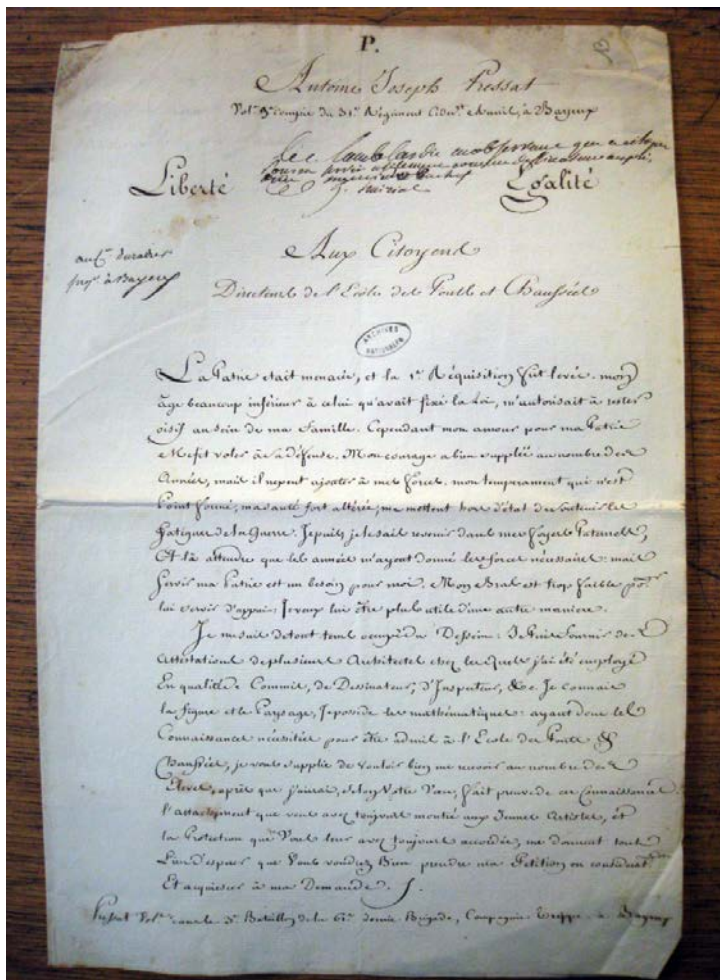 P.
Antoine Joseph Pressat
Vol.re Compie du 31e Régiment à Bayeux
Liberté
Egalité
prog. à Bayeux
Aux Citoyens
Directeurs de l'Ecole des Ponts et Chaussées
ARCHIVES NATIONALES
La Patrie etait menacée, et la 1re Réquisition fut levée. mon
âge beaucoup inférieur à celui qu'avait fixé la Loi, m'autorisait à rester
oisif au sein de ma famille. Cependant mon amour pour ma Patrie
me fit voler à sa défense. Mon courage a bien suppléé au nombre des
Années, mais il ne peut ajouter à mes forces. mon temperament qui n'est
point formé, ma santé fort altérée, me mettent hors d'état de soutenir les
fatigues de la Guerre. Je puis, je le sais revenir dans mes foyers Paternels,
Et là attendre que les années m'ayent donné les forces nécessaires: mais
servir ma Patrie est un besoin pour moi. Mon Bras est trop faible pr.
lui servir d'appui: Je veux lui être plus utile d'une autre maniere.
Je me suis de tout tems occupé du Dessin: Je puis fournir des
Attestations de plusieurs Architectes chez lesquels j'ai été employé
En qualité de Commis, de Dessinateur, d'Inspecteur, &c. Je connais
la figure et le Paysage, Je possede les mathématiques: ayant donc les
Connaissances nécessities pour être admis à l'Ecole des Ponts &
Chaussées, je vous supplie de vouloir bien me recevoir au nombre des
Eleves, après que j'aurai, selon Votre Vœu, fait preuve de ces Connaissances
l'attachement que vous avez toujours montré aux Jeunes Artistes, et
la Protection que Vous leur avez toujours accordée, me donnent tout
Lieu d'esperer que Vous voudrez Bien prendre ma Petition en considerat.on
Et acquiescer à ma Demande.
Pressat Vol.re dans le 3e Bataillon de la 61e demie Brigade, Compagnie à Bayeux